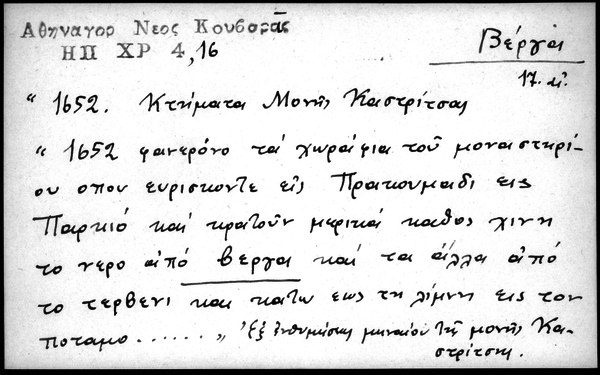 Αθηναγορ Νεος Κουβαρᾶς
ΗΠ ΧΡ 4,16
Βέργαι
17. αἰ.
" 1652. Κτήματα Μονῆς Καστρίτσας
" 1652 φανερόνο τά χωράφια τοῦ μοναστηρί-
ου οπου ευρισκοντε εἰς Πρακουμαδι εις
Παρκιό καί κρατοῦν μερικά καθος χινη
το νερο ἀπό βεργαι καί τα ἄλλα ἀπό
το τερβενι και κατω εως τη λίμνη εις τον
ποταμο ...... „ Ἐξ ἐνθυμίσεως μηναίου τῆς μονῆς Κα-
στρίτσης.